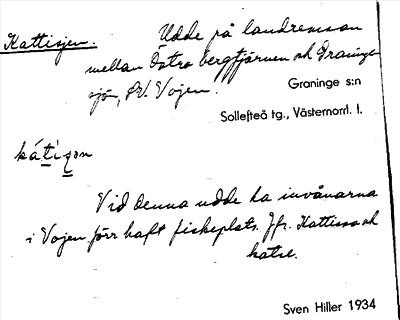 Kattisjen. Udde på landremsan
mellan Östra bergtjärnen och Graninge-
sjön, SV. Vojen.
Graninge s:n
Sollefteå tg., Västernorrl. l.
Vid denna udde ha invånarna
i Vojen förr haft fiskeplats. Jfr. Kattissa och
katse.
Sven Hiller 1934